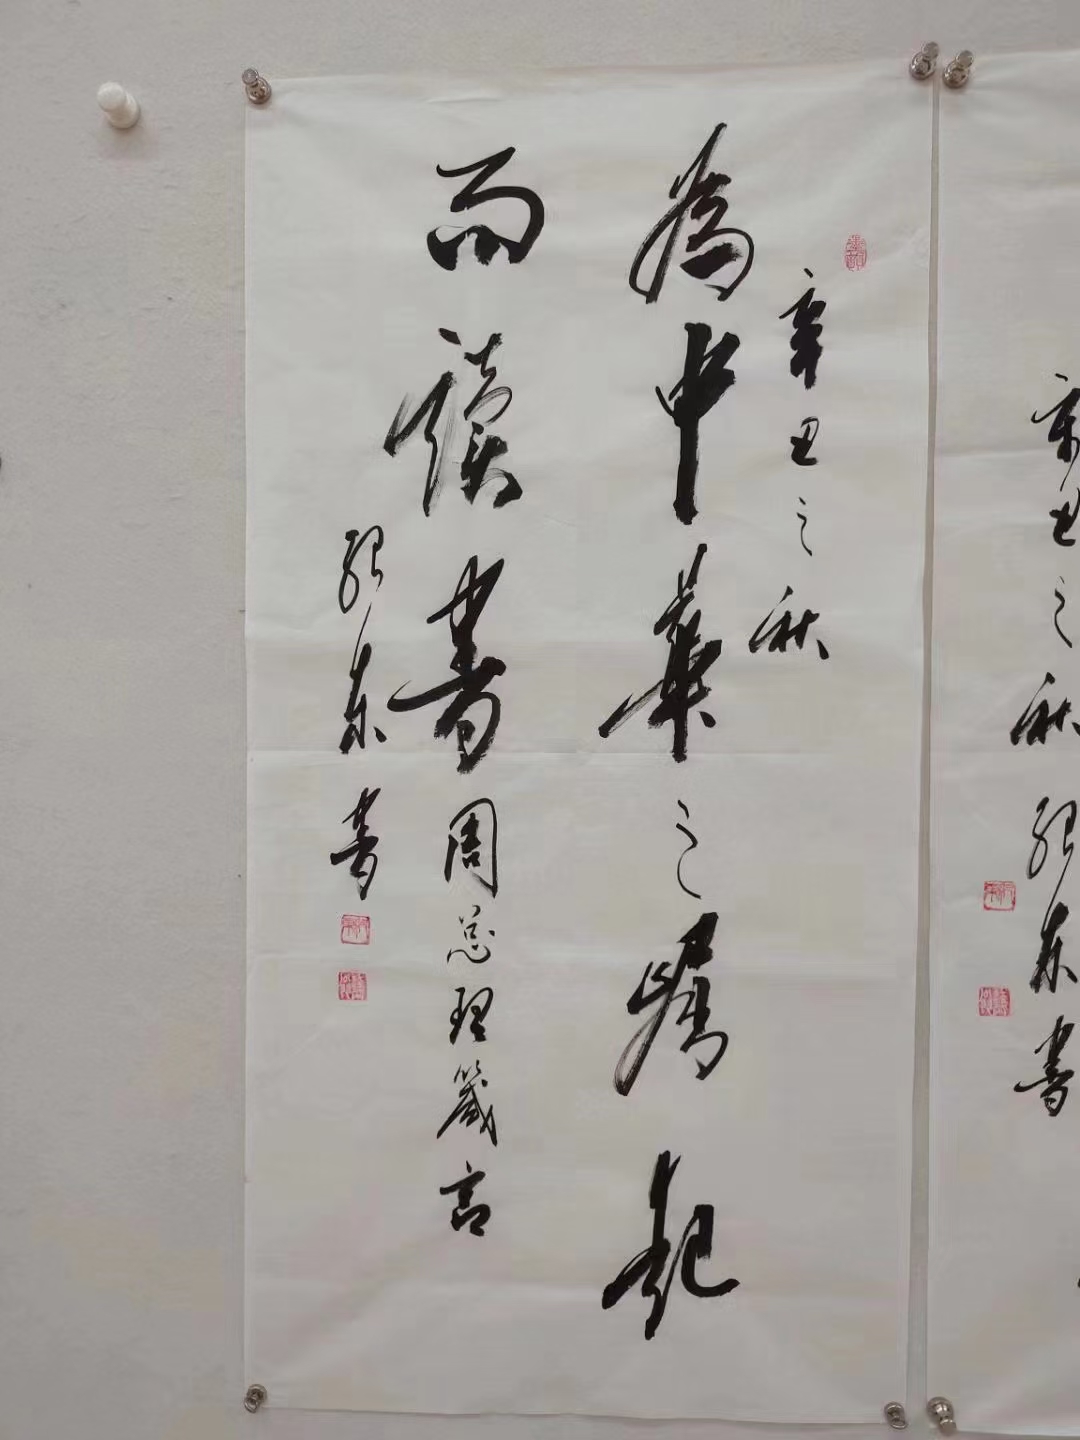 辛丑之秋 东書
辛丑之秋
為中華之崛起
而讀書 周总理箴言
东書